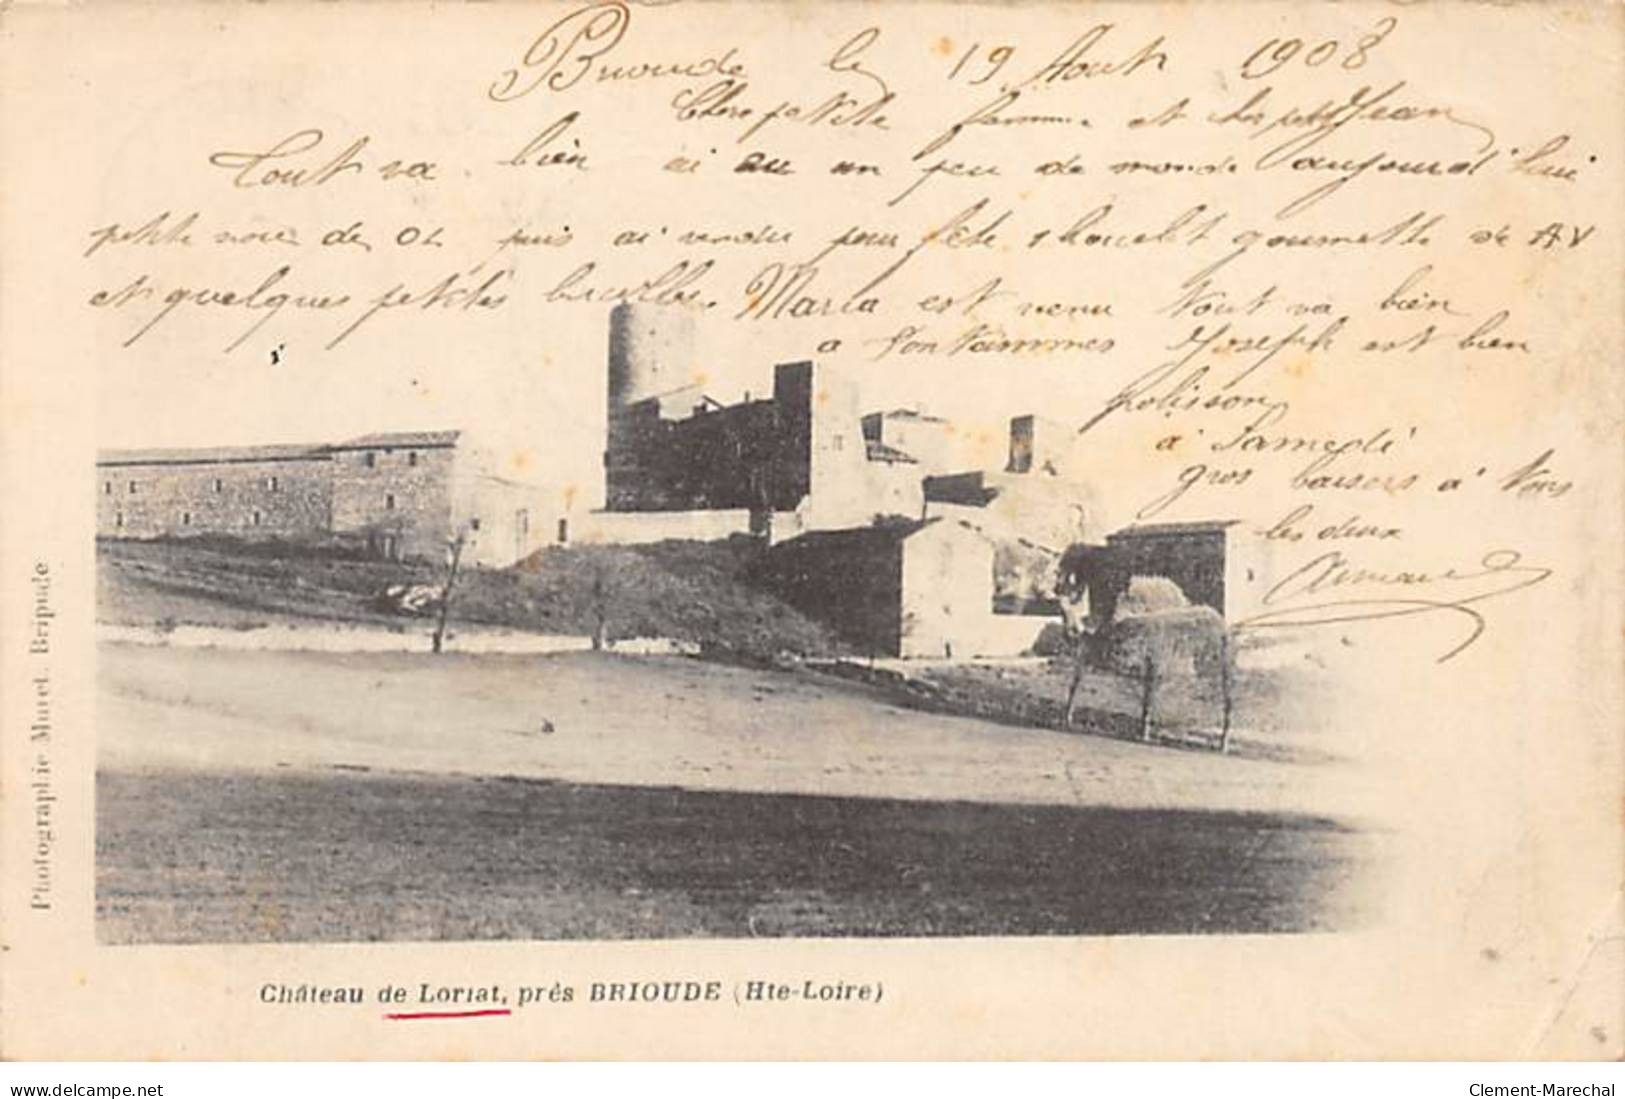 Brioude le 19 Aout 1908
Chere petite femme et cher petit Jean
Tout va bien ai eu un peu de monde aujourd'hui
petite noce de 02 puis ai vendu pour fête gourmette de AV
et quelques petites Maria est venu tout va bien
a Fontannnes Joseph est bien
polisson
a Samedi
gros baisers a Vous
les deux
Armand
Photographie Muret. Brioude
Château de Loriat, près BRIOUDE (Hte-Loire)
delcampe.net
Clement-Marechal